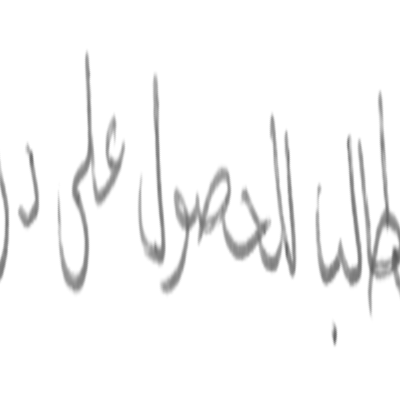 طالب للحصول على